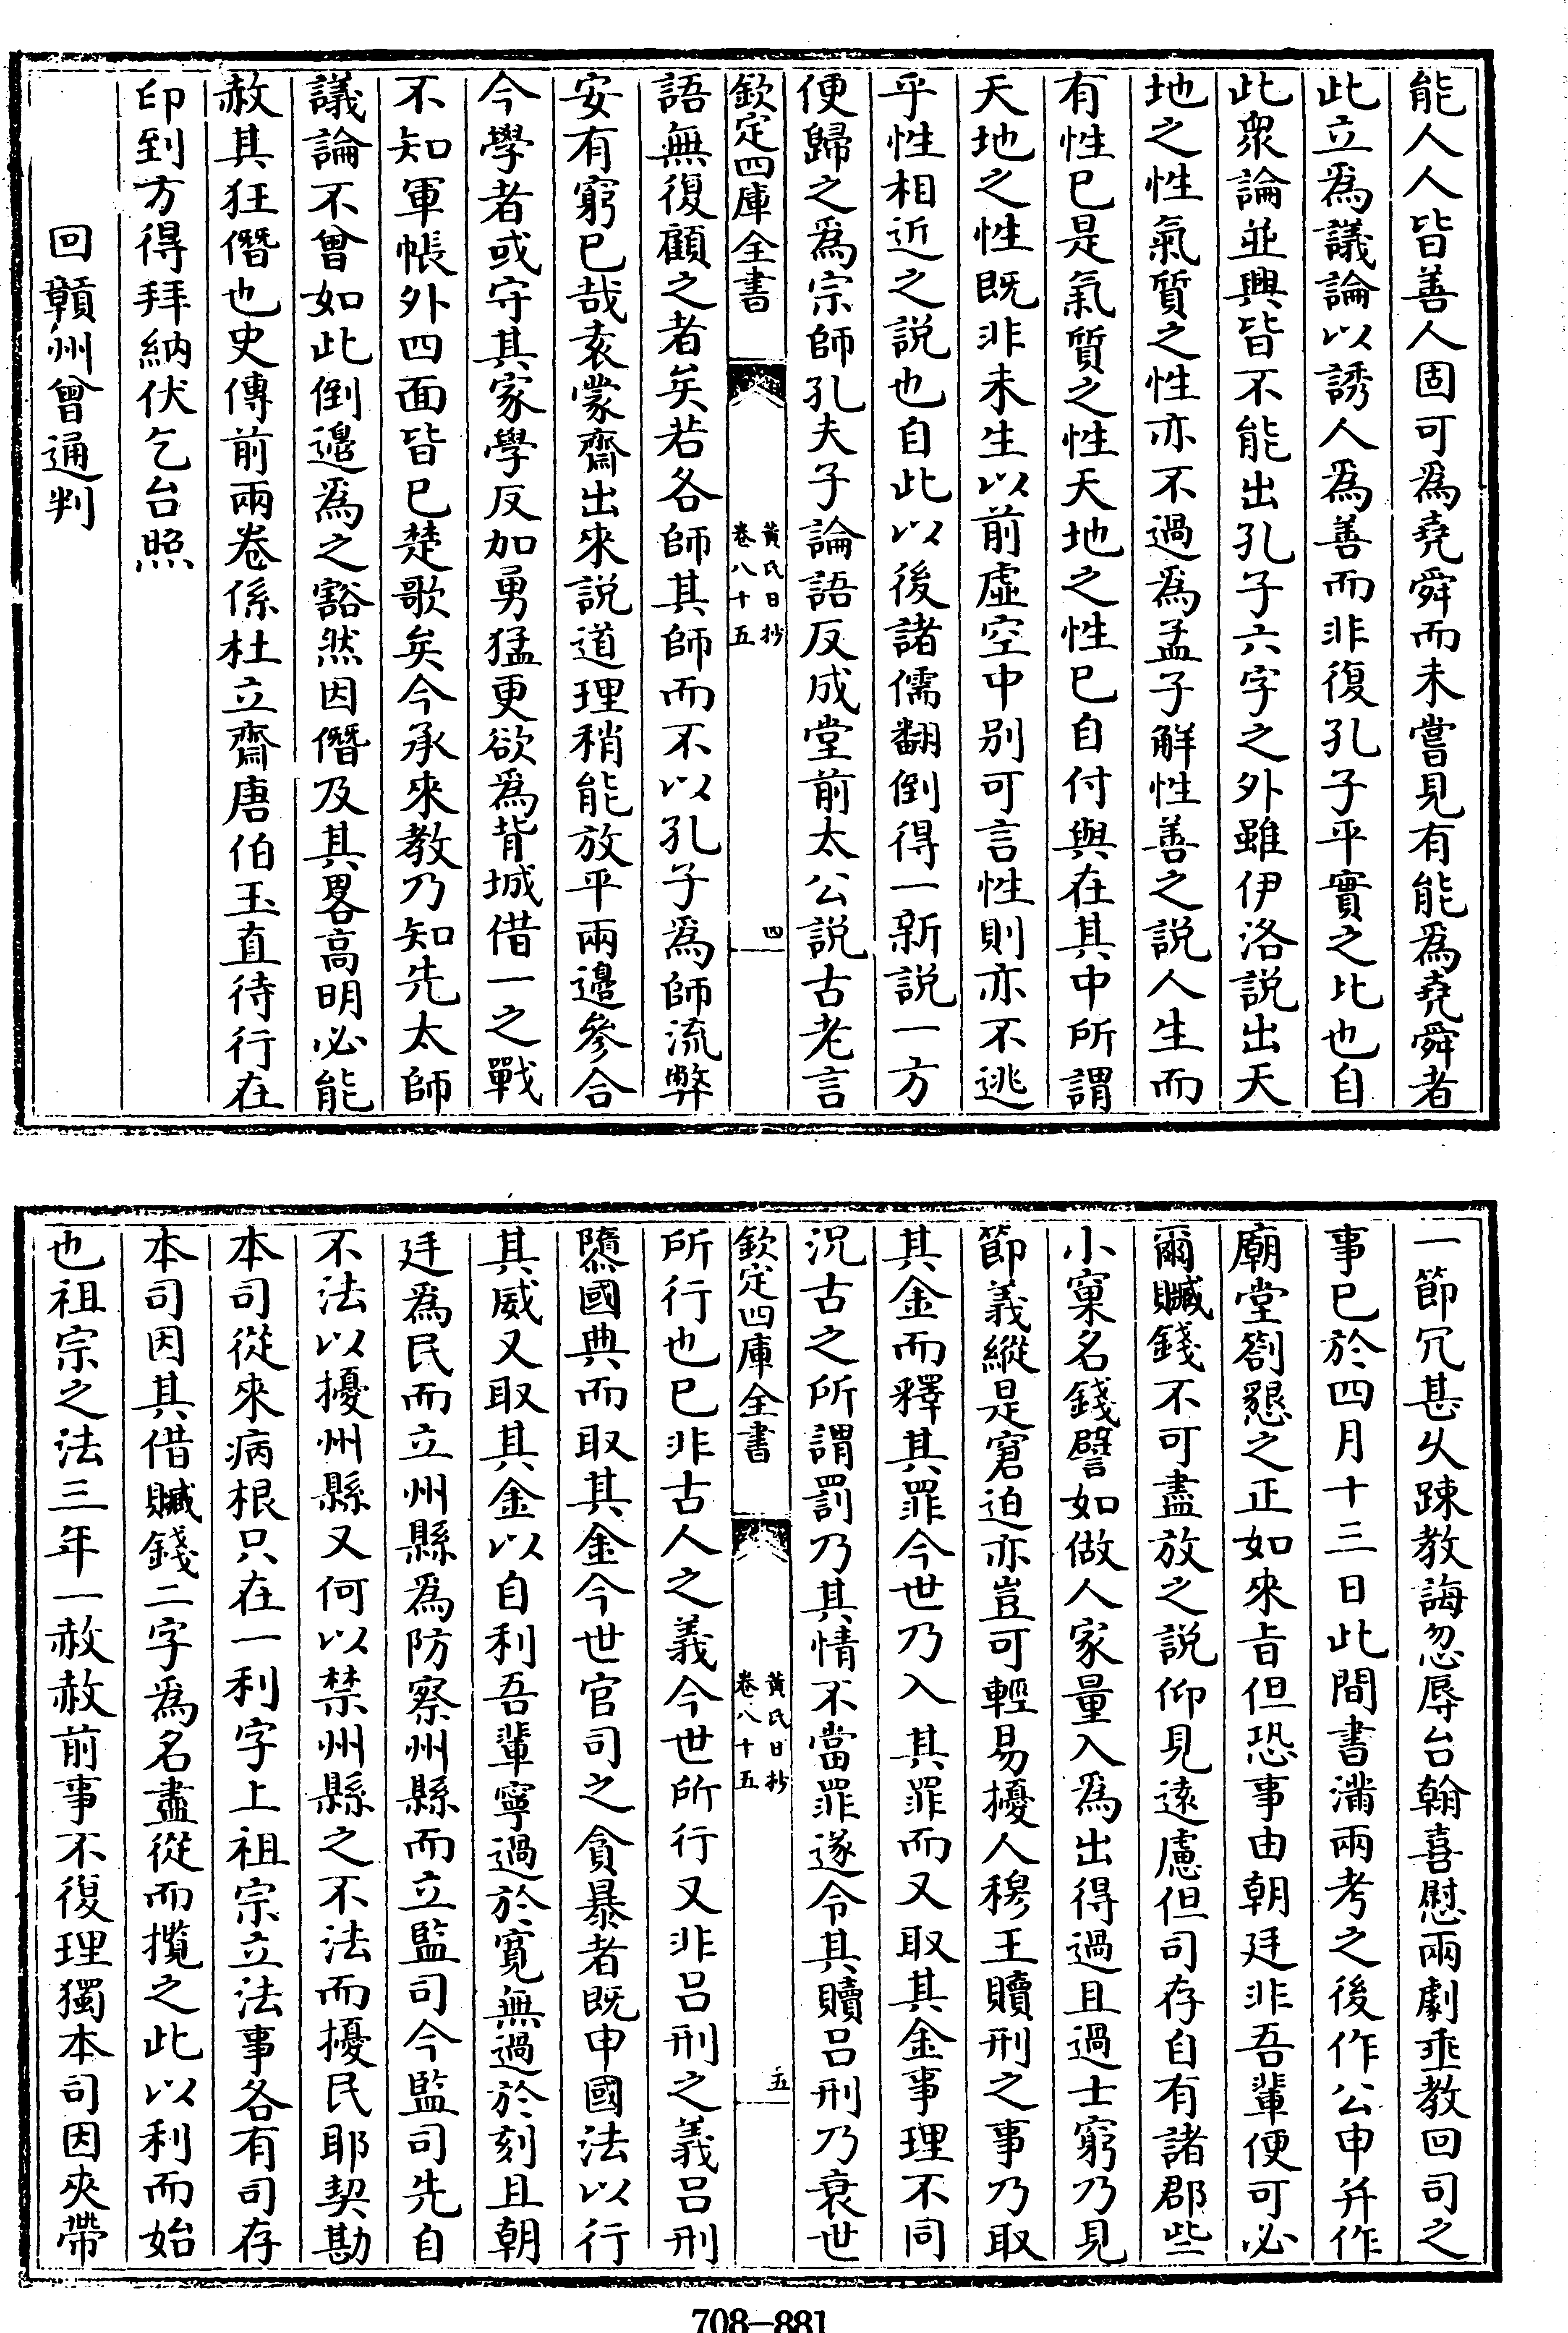 能人人皆善人固可為堯舜而未嘗見有能為堯舜者
此立為議論以誘人為善而非復孔子平實之比也自
此衆論並興皆不能出孔子六字之外雖伊洛説出天
地之性氣質之性亦不過為孟子解性善之説人生而
有性已是氣質之性天地之性已自付與在其中所謂
天地之性既非未生以前虛空中別可言性則亦不逃
乎性相近之説也自此以後諸儒翻倒得一新説一方
便歸之為宗師孔夫子論語反成堂前太公説古老言
欽定四庫全書
黃氏日抄
卷八十五
四
語無復顧之者矣若各師其師而不以孔子為師流弊
安有窮已哉袁蒙齋出來説道理稍能放平兩邉參合
今學者或守其家學反加勇猛更欲為背城借一之戰
不知軍帳外四面皆已楚歌矣今承來教乃知先太師
議論不曾如此倒邉為之豁然因僭及其畧高明必能
赦其狂僭也史傳前兩卷係杜立齋唐伯玉直待行在
印到方得拜納伏乞台照
回贑州曾通判
一節冗甚乆踈教誨忽辱台翰喜慰兩劇垂教回司之
事已於四月十三日此間書滿兩考之後作公申并作
廟堂劄懇之正如來㫖但恐事由朝廷非吾輩便可必
爾贓錢不可盡放之説仰見逺慮但司存自有諸郡些
小窠名錢譬如做人家量入為出得過且過士窮乃見
節義縱是窘迫亦豈可輕易擾人穆王贖刑之事乃取
其金而釋其罪今世乃入其罪而又取其金事理不同
況古之所謂罰乃其情不當罪遂令其贖吕刑乃衰世
欽定四庫全書
黃氏日抄
卷八十五
五
所行也已非古人之義今世所行又非吕刑之義吕刑
隳國典而取其金今世官司之貪暴者既申國法以行
其威又取其金以自利吾輩寧過於寛無過於刻且朝
廷為民而立州縣為防察州縣而立監司今監司先自
不法以擾州縣又何以禁州縣之不法而擾民耶契勘
本司從來病根只在一利字上祖宗立法事各有司存
本司因其借贓錢二字為名盡從而攬之此以利而始
也祖宗之法三年一赦赦前事不復理獨本司因夾帶
708-881